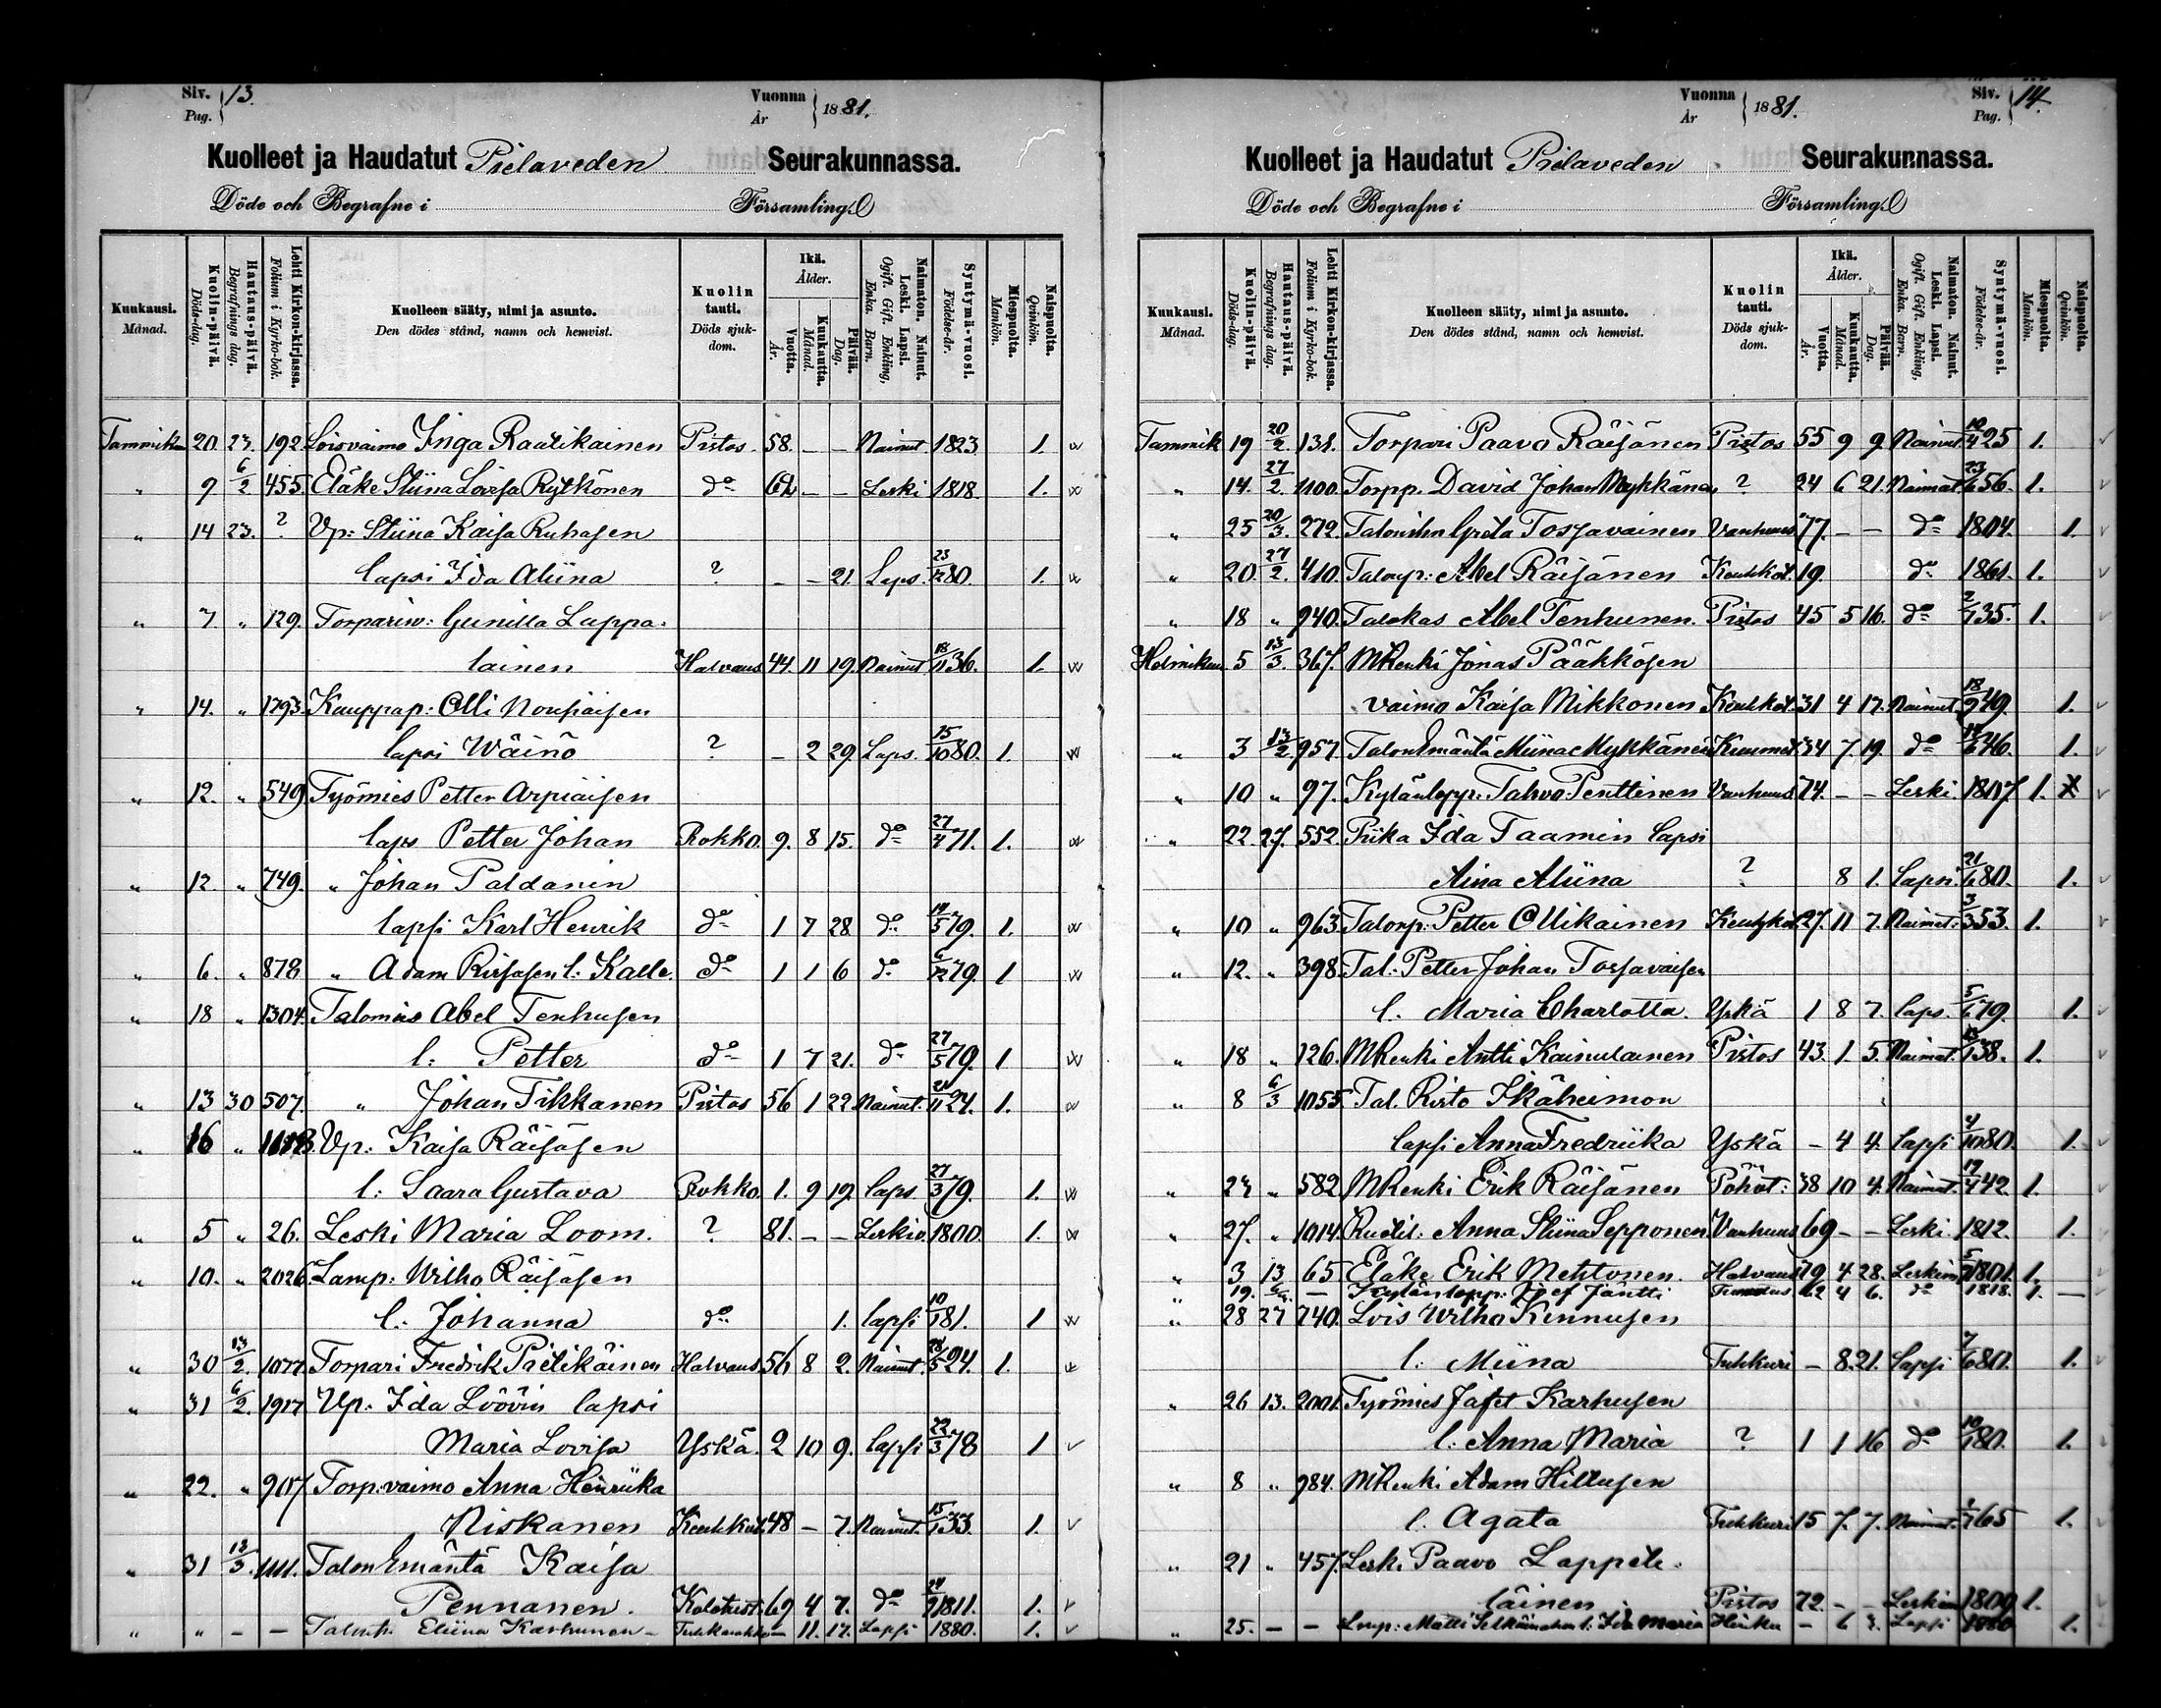 Siv. Pag. 13.
Vuonna År 1881.
Kuolleet ja Haudatut Pielaveden Seurakunnassa.
Döde och Begrafne i Församling.
Kuukausi. Månad.
Kuolin-päivä. Döds-dag.
Hautaus-päivä. Begrafnings dag.
Lehti Kirkon-kirjassa. Folium i Kyrko-bok.
Kuolleen sääty, nimi ja asunto. Den dödes stånd, namn och hemvist.
Kuolin tauti. Döds sjukdom.
Ikä. Ålder.
Vuotta. År.
Kuukautta. Månad.
Päivää. Dag.
Naimaton. Nainut. Leski. Lapsi. Ogift. Gift. Enkling, Enka. Barn.
Syntymä-vuosi. Födelse-år.
Miespuolta. Mankön.
Naispuolta. Qvinkön.
Tammik 20. 23. 192 Loisvaimo Inga Raatikainen Pistos. 58. – – Nainut 1823. 1.
„ 9 6/2 455. Eläke Stiina Lovisa Rytkönen do 62 – – Leski 1818. 1.
„ 14 23. ? Vp: Stiina Kaisa Ruhasen
lapsi Ida Aliina ? – – 21. Laps. 23/12 80. 1.
„ 7. „ 129. Torpariv: Gunilla Lappa-
lainen Halvaus 44. 11 19. Nainut 18/11 36. 1.
„ 14. „ 1793. Kauppap: Olli Nousiaisen
lapsi Wäinö ? – 2 29. Laps. 15/10 80. 1.
„ 12. „ 549. Työmies Petter Arpiaisen
laps Petter Johan Rokko. 9. 8 15. do 27/4 71. 1.
„ 12. „ 749. „ Johan Paldanin
lapsi Karl Henrik do 1 7 28 do 14/5 79. 1.
„ 6. „ 878 „ Adam Riisasen l: Kalle. do 1 1 6 do 6/12 79. 1
„ 18 „ 1304. Talomies Abel Tenhusen
l: Petter do 1 7 21. do 27/5 79. 1
„ 13 30 507. „ Johan Tikkanen Pistos 56 1 22 Nainut. 21/11 24. 1.
„ 16 „ Vp: Kaisa Räisäsen
l: Saara Gustava Rokko. 1. 9 19. laps 27/3 79. 1.
„ 5 „ 26. Leski Maria Loom. ? 81. – – Leskiv. 1800. 1.
„ 10. „ 2026 Lamp: Wilho Räisäsen
l: Johanna do 1. lapsi 10/1 81. 1
„ 30 13/2. 1077. Torpari Fredrik Pietikäinen Halvaus. 56 8 2. Nainut. 28/5 24. 1.
„ 31 6/2. 1917 Vp: Ida Löövin lapsi
Maria Lovisa Yskä. 2 10 9. lapsi 22/3 78 1
„ 22. „ 907 Torp.vaimo Anna Henriika
Niskanen Keuhkot. 48 – 7. Nainut. 15/1 33. 1.
„ 31 13/3. 1111. Talon Emäntä Kaisa
Pennanen. 69 4 7. do 24/9 1811. 1.
„ „ – – Eliina Karhunen – Tuhkarokko – 11. 17. Lapsi 1880. 1.
Vuonna År 1881.
Siv. Pag. 14.
Kuolleet ja Haudatut Pielaveden Seurakunnassa.
Döde och Begrafne i Församling.
Kuukausi. Månad.
Kuolin-päivä. Döds-dag.
Hautaus-päivä. Begrafnings dag.
Lehti Kirkon-kirjassa. Folium i Kyrko-bok.
Kuolleen sääty, nimi ja asunto. Den dödes stånd, namn och hemvist.
Kuolin tauti. Döds sjukdom.
Ikä. Ålder.
Vuotta. År.
Kuukautta. Månad.
Päivää. Dag.
Naimaton. Nainut. Leski. Lapsi. Ogift. Gift. Enkling, Enka. Barn.
Syntymä-vuosi. Födelse-år.
Miespuolta. Mankön.
Naispuolta. Qvinkön.
Tammik 19 20/2. 131. Torpari Paavo Räisänen Pistos 55 9 9. Nainut. 10/4 25 1.
„ 14. 27/2. 1100. Torpp. David Johan Mykkänen ? 24 6 21. Naimat. 23/6 56. 1.
„ 25 20/3. 272. Greta Tossavainen Vanhuus 77. – – do 1804. 1.
„ 20. 27/2. 410. Talonp: Abel Räisänen Keuhkot. 19. do 1861. 1.
„ 18 „ 940. Talokas Abel Tenhunen. Pistos 45 5 16. do 2/7 35. 1.
Helmikuu 5 13/3. 367. MRenki Jonas Pääkkösen
vaimo Kaisa Mikkonen Keuhkot. 31 4 17. Nainut 18/9 49. 1.
„ 3 13/2. 957. Talon Emäntä Miina Mykkänen 34 7. 19. do 46. 1.
„ 10 „ 97. Kylänlopp: Tahvo Penttinen Vanhuus 74. – – Leski. 1807. 1.
„ 22. 27. 552. Piika Ida Taamin lapsi
Aina Aliina ? 8 1. Lapsi. 21/6 80. 1.
„ 10 „ 963. Talonp: Petter Ollikainen Keuhkot. 27. 11 7. Naimat: 3/3 53. 1.
„ 12. „ 398. Tal: Petter Johan Tossavaisen
l. Maria Charlotta. Yskä 1 8 7. laps. 5/6 79. 1.
„ 18 „ 126. MRenki Antti Kainulainen Pistos 43. 1. 5. Naimat. 13/1 38. 1.
„ 8 6/3 1055 Tal. Risto Ikäheimon
lapsi Anna Fredriika Yskä – 4 4. lapsi 4/10 80. 1.
„ „ 582. MRenki Erik Räisänen Pöhöt: 38 10 4. Nainut. 19/4 42. 1.
„ 27. „ 1014. Ruotil: Anna Stiina Sepponen. Vanhuus 69 – – Leski. 1812. 1.
„ 3 13 65 Eläke Erik Mehtonen. Halvaus 79 4 28. Leskim 5/9 1801. 1.
„ 19. – Kylänlopp: Josef Jäntti 62 4 6. do 1818. 1. –
„ 28 27 740. Lois Wilho Kinnusen
l: Miina Tuhkuri – 8. 21. lapsi 7/6 80. 1.
„ 26 13. 2001. Työmies Jafet Karhusen
l: Anna Maria ? 1 1 16 do 10/1 80. 1.
„ 8 „ 984. MRenki Adam Hillusen
l. Agata Tuhkuri 15 7. 7. Naimat. 1/7 65 1.
„ 21 „ 457. Leski Paavo Lappete-
läinen Pistos 72. – – Leskim 1809 1.
„ 25. – – Matti l: Ida Maria – 6 Lapsi 1880 1.